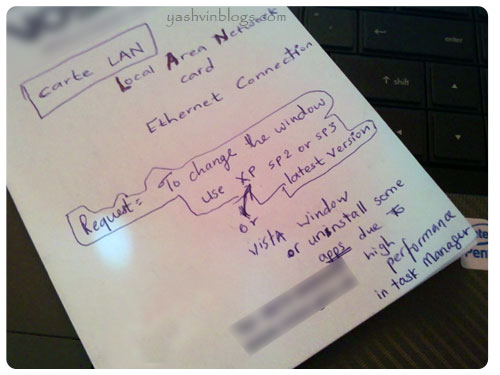 yashvinblogs.com
carte LAN
Local Area Network
card
Ethernet Connection
Request: To change the window
use XP SP2 or SP3
latest version
or
VISTA window
or uninstall some
apps due to
high
performance
in task Manager
shift